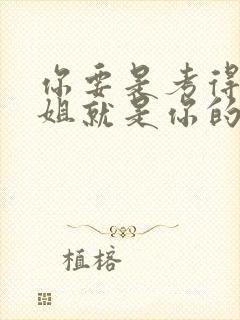 你要是考得
姐就是你的
植榕